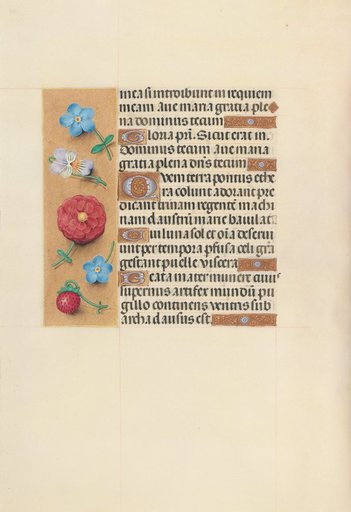 mea si introibunt in requiem
meam Aue maria gratia ple
na dominus tecum
Gloria pri. Sicut erat in.
Dominus tecum Aue maria
gratia plena dns tecum
Quem terra pontus ethe
ra colunt adorant pre
dicant trinam regente machi
nam claustru marie baiulat
Cui luna sol et oia deserui
unt per tempora pfusa celi gra
gestant puelle viscera
Beata mater munere cuius
supernus artifex mundu pu
gillo continens ventris sub
archa clausus est